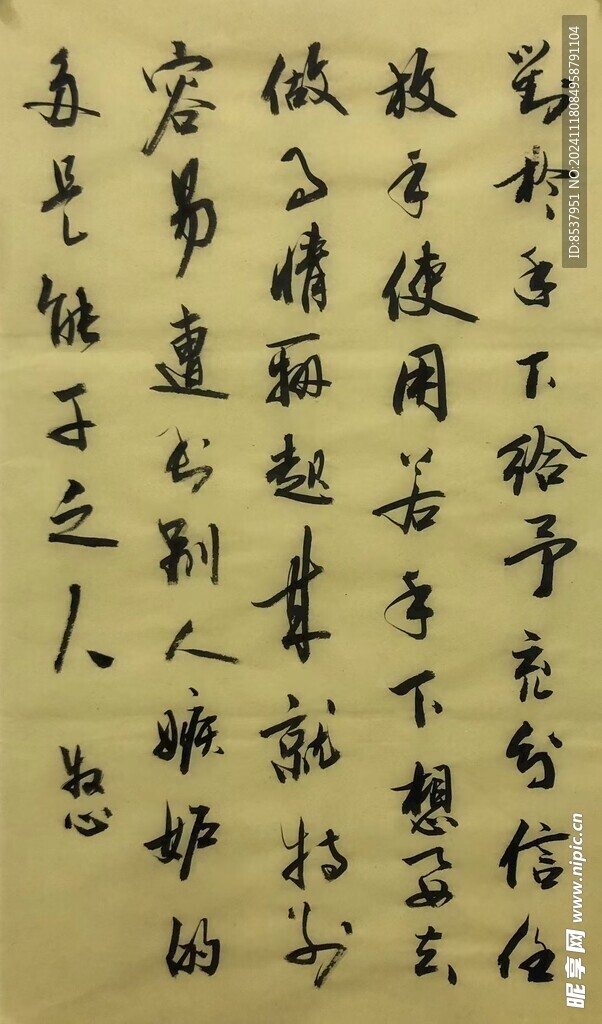 對於手下給予充分信任
放手使用若手下想要去
做事情辦起來就特别
容易遭到别人嫉妒的
多是能干之人
牧心
ID:8537951 NO:20241118084958791104
昵享网 www.nipic.cn